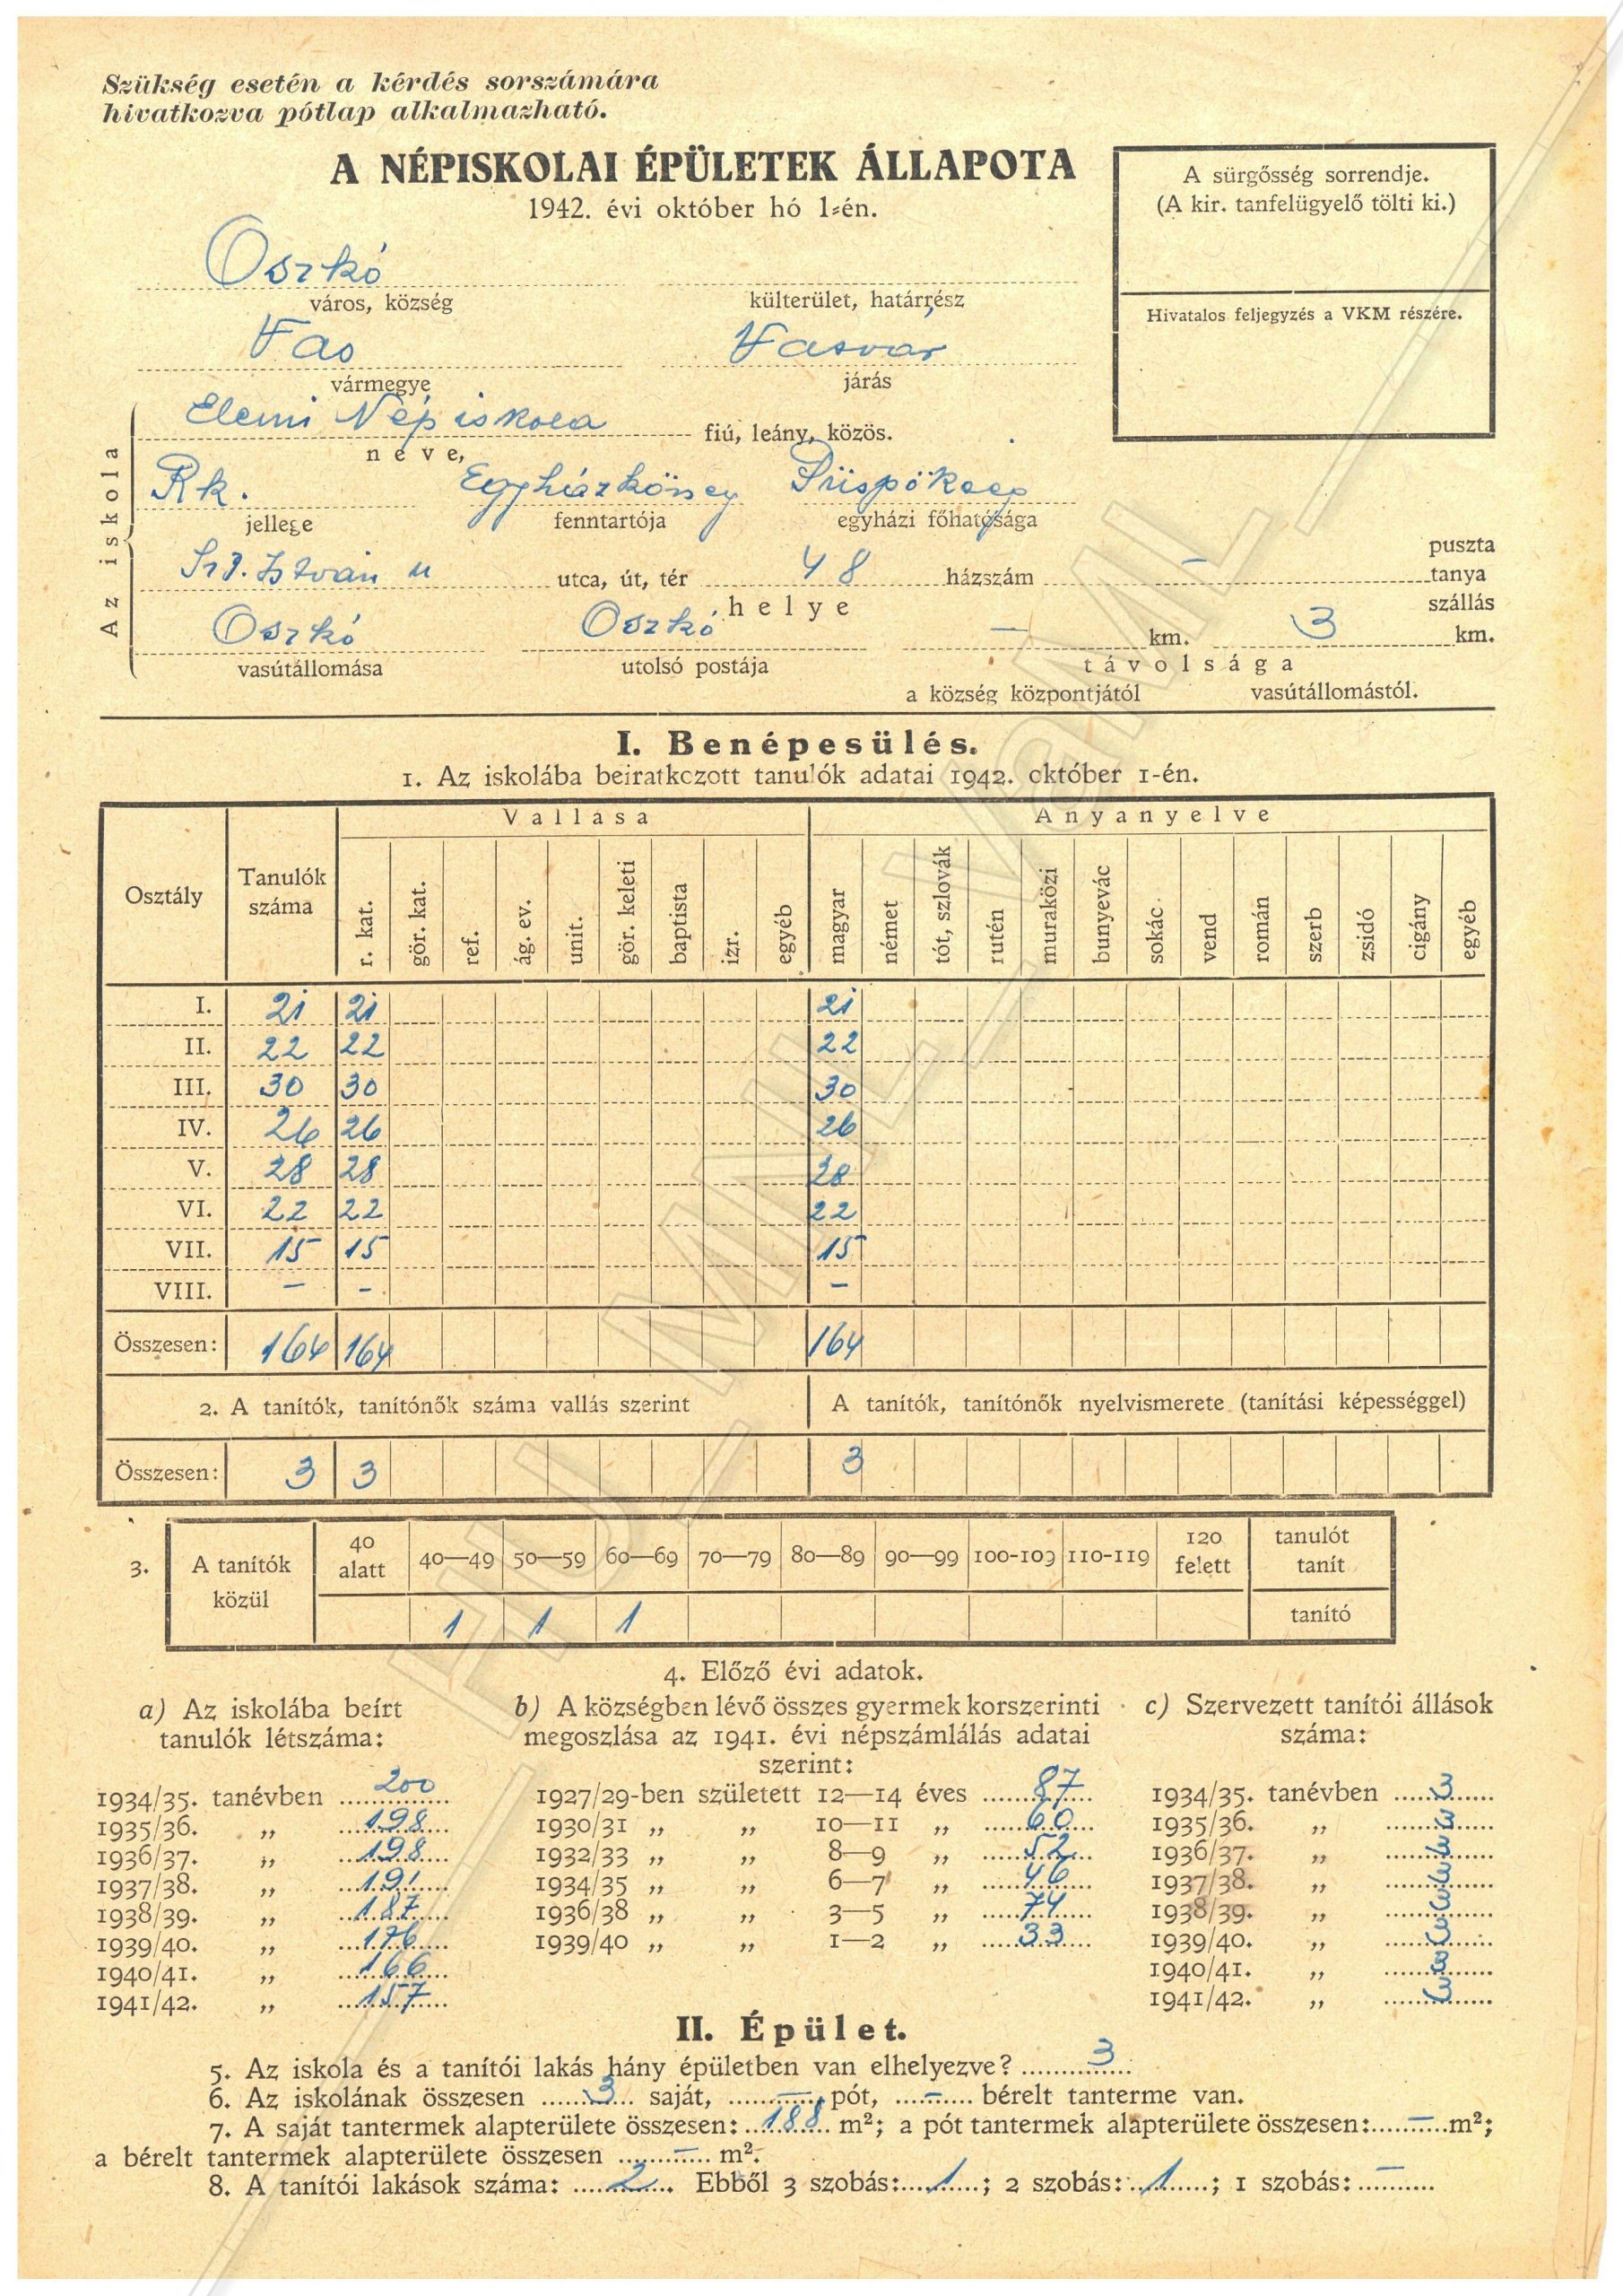 Szükség esetén a kérdés sorszámára
hivatkozva pótlap alkalmazható.
A NÉPISKOLAI ÉPÜLETEK ÁLLAPOTA
1942. évi október hó 1-én.
A sürgősség sorrendje.
(A kir. tanfelügyelő tölti ki.)
Hivatalos feljegyzés a VKM részére.
Oszkó
város, község külterület, határrész
Vas Vasvár
vármegye járás
Az iskola
Elemi Népiskola fiú, leány, közös.
neve,
Rk. Egyházközség Püspökség
jellege fenntartója egyházi főhatósága
Szt. István u utca, út, tér 48 házszám – puszta
tanya
szállás
helye
Oszkó Oszkó – km. 3 km.
vasútállomása utolsó postája távolsága
a község központjától vasútállomástól.
I. Benépesülés.
1. Az iskolába beiratkozott tanulók adatai 1942. október 1-én.
Osztály Tanulók száma Vallása Anyanyelve
r. kat. gör. kat. ref. ág. ev. unit. gör. keleti baptista izr. egyéb magyar német tót, szlovák rutén muraközi bunyevác sokác vend román szerb zsidó cigány egyéb
I. 21 21 21
II. 22 22 22
III. 30 30 30
IV. 26 26 26
V. 28 28 28
VI. 22 22 22
VII. 15 15 15
VIII. – – –
Összesen: 164 164 164
2. A tanítók, tanítónők száma vallás szerint A tanítók, tanítónők nyelvismerete (tanítási képességgel)
Összesen: 3 3 3
3. A tanítók közül 40 alatt 40—49 50—59 60—69 70—79 80—89 90—99 100-109 110-119 120 felett tanulót tanít
1 1 1 tanító
4. Előző évi adatok.
a) Az iskolába beírt
tanulók létszáma:
b) A községben lévő összes gyermek korszerinti
megoszlása az 1941. évi népszámlálás adatai
szerint:
c) Szervezett tanítói állások
száma:
1934/35. tanévben 200 1927/29-ben született 12—14 éves 87 1934/35. tanévben 3
1935/36. „ 198 1930/31 „ „ 10—11 „ 60 1935/36. „ 3
1936/37. „ 198 1932/33 „ „ 8—9 „ 52 1936/37. „ 3
1937/38. „ 191 1934/35 „ „ 6—7 „ 46 1937/38. „ 3
1938/39. „ 187 1936/38 „ „ 3—5 „ 74 1938/39. „ 3
1939/40. „ 176 1939/40 „ „ 1—2 „ 33 1939/40. „ 3
1940/41. „ 166 1940/41. „ 3
1941/42. „ 157 1941/42. „ 3
II. Épület.
5. Az iskola és a tanítói lakás hány épületben van elhelyezve? 3
6. Az iskolának összesen 3 saját, – pót, – bérelt tanterme van.
7. A saját tantermek alapterülete összesen: 188 m²; a pót tantermek alapterülete összesen: – m²;
a bérelt tantermek alapterülete összesen – m².
8. A tanítói lakások száma: 2. Ebből 3 szobás: 1; 2 szobás: 1; 1 szobás: –
HU_MNL_VaML